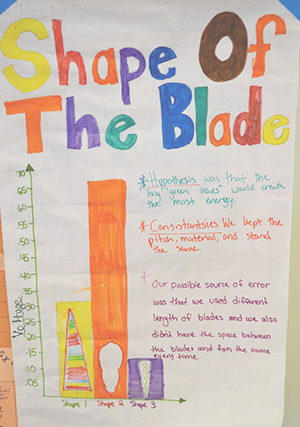 Shape Of
The Blade
*Hypothesis was that the
long green "leaves" would create
the most energy.
*Consistantsies: We kept the
pitch, material, and stand
the same.
* Our possible source of error
was that we used different
length of blades and we also
didn't have the space between
the blades and fan the same
every time.
Voltage
.15
.10
.05
Shape 1 Shape 2 Shape 3